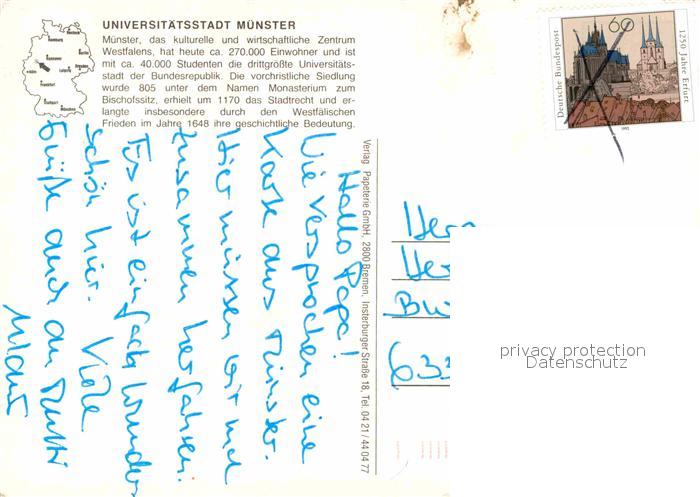 UNIVERSITÄTSSTADT MÜNSTER
Münster, das kulturelle und wirtschaftliche Zentrum
Westfalens, hat heute ca. 270.000 Einwohner und ist
mit ca. 40.000 Studenten die drittgrößte Universitäts-
stadt der Bundesrepublik. Die vorchristliche Siedlung
wurde 805 unter dem Namen Monasterium zum
Bischofssitz, erhielt um 1170 das Stadtrecht und er-
langte insbesondere durch den Westfälischen
Frieden im Jahre 1648 ihre geschichtliche Bedeutung.
Hallo Papa!
Wie versprochen eine
Karte aus Münster.
Hier müssen wir mal
zusammen herfahren.
Es ist einfach wunder
schön hier. Viele
Grüße auch an Mutti
Verlag Papeterie GmbH, 2800 Bremen, Insterburger Straße 18, Tel. 04 21 / 44 04 77
Deutsche Bundespost
60
1250 Jahre Erfurt
1992
Herr
Her
633
privacy protection
Datenschutz